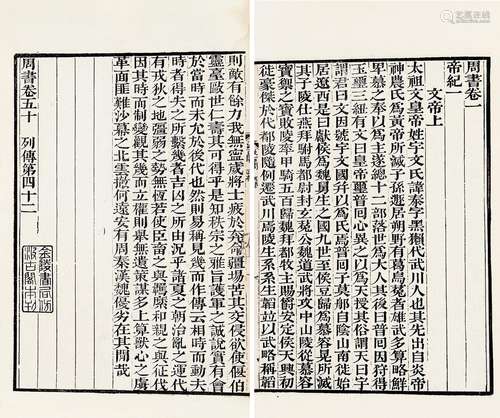 周書卷一
帝紀
文帝上
太祖文皇帝姓宇文氏諱泰字黑獺代武川人也其先出自炎帝
神農氏爲黃帝所滅子孫遯居朔野有葛烏菟者雄武多算略鮮
卑慕之奉以爲主遂總十二部落世爲大人其後曰普回因狩得
玉璽三紐有文曰皇帝璽普回心異之以爲天授其俗謂天曰宇
謂君曰文因號宇文國并以爲氏焉普回子莫那自陰山南徙始
居遼西是曰獻侯爲魏舅生之國九世至侯豆歸爲慕容晃所滅
其子陵仕燕拜駙馬都尉封玄菟公魏道武將攻中山陵從慕容
寶禦之寶敗陵率甲騎五百歸魏拜都牧主賜爵安定侯天興初
徙豪傑於代都陵隨例遷武川焉陵生系系生韜並以武略稱韜
則敵有餘力我無寧歲將士疲於奔命疆場苦其交侵欲使偃伯
靈臺歐世仁壽其可得乎是知秩宗之雅旨護軍之誠說實有會
於當時而未允於後代也然則易稱見幾而作傳云相時而動夫
時者得失之所繫幾者吉凶之所由況乎諸夏之朝治亂之運代
有戎狄之地彊弱之勢無恆若使臣畜之與羈縻和親之與征伐
因其時而制變觀其幾而立權則舉無遺策謀多上算獸心之虜
革面匪難沙幕之北雲撤何遠安有周秦漢魏優劣在其間哉
周書卷五十　列傳第四十二
金陵書局仿
汲古閣本刊